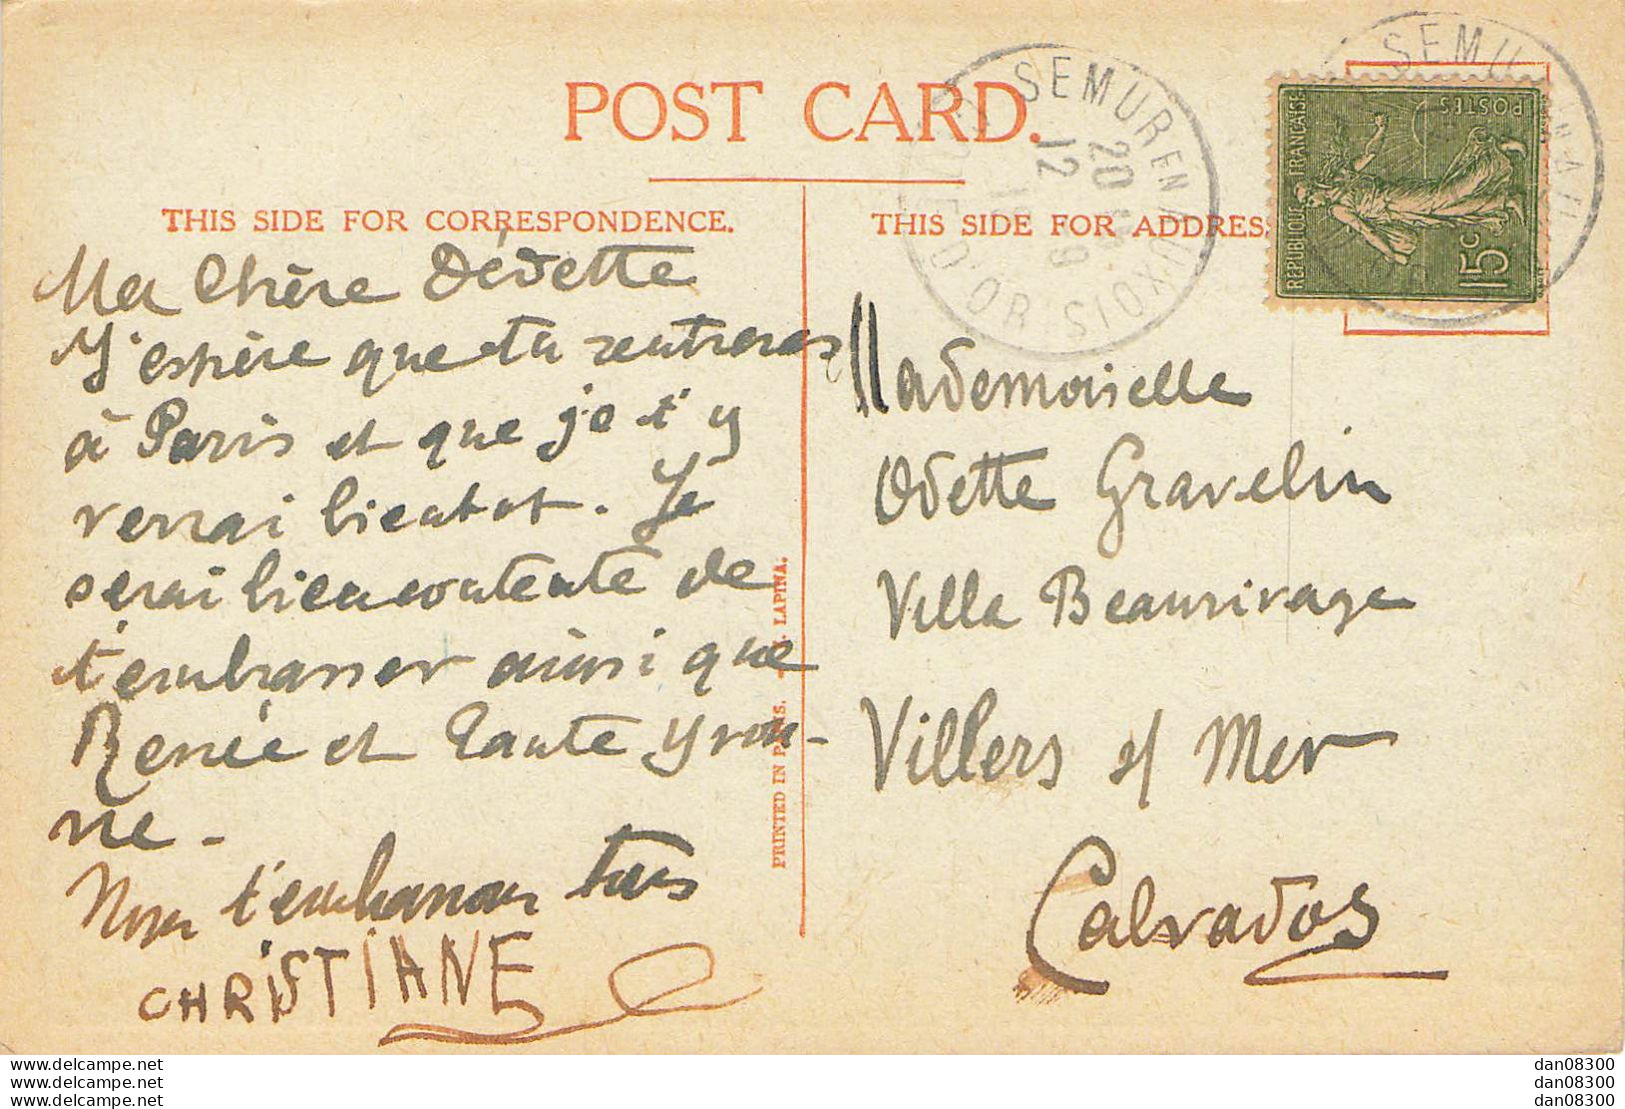 POST CARD.
THIS SIDE FOR CORRESPONDENCE.
Ma Chère Dédette
J'espère que tu rentreras
à Paris et que je t'y
verrai bientot. Je
serai bien contente de
t'embrasser ainsi que
Renée et Tante Yvon-
ne -
Nous t'embrassons tous
CHRISTIANE
PRINTED IN PARIS. LAPINA.
THIS SIDE FOR ADDRESS
SEMUR EN AUXOIS
CÔTE D'OR
20
12
REPUBLIQUE FRANCAISE
POSTES
15c
SEMUR EN AU
Mademoiselle
Odette Gravelin
Villa Beaurivage
Villers s/ Mer
Calvados
www.delcampe.net
www.delcampe.net
www.delcampe.net
dan08300
dan08300
dan08300